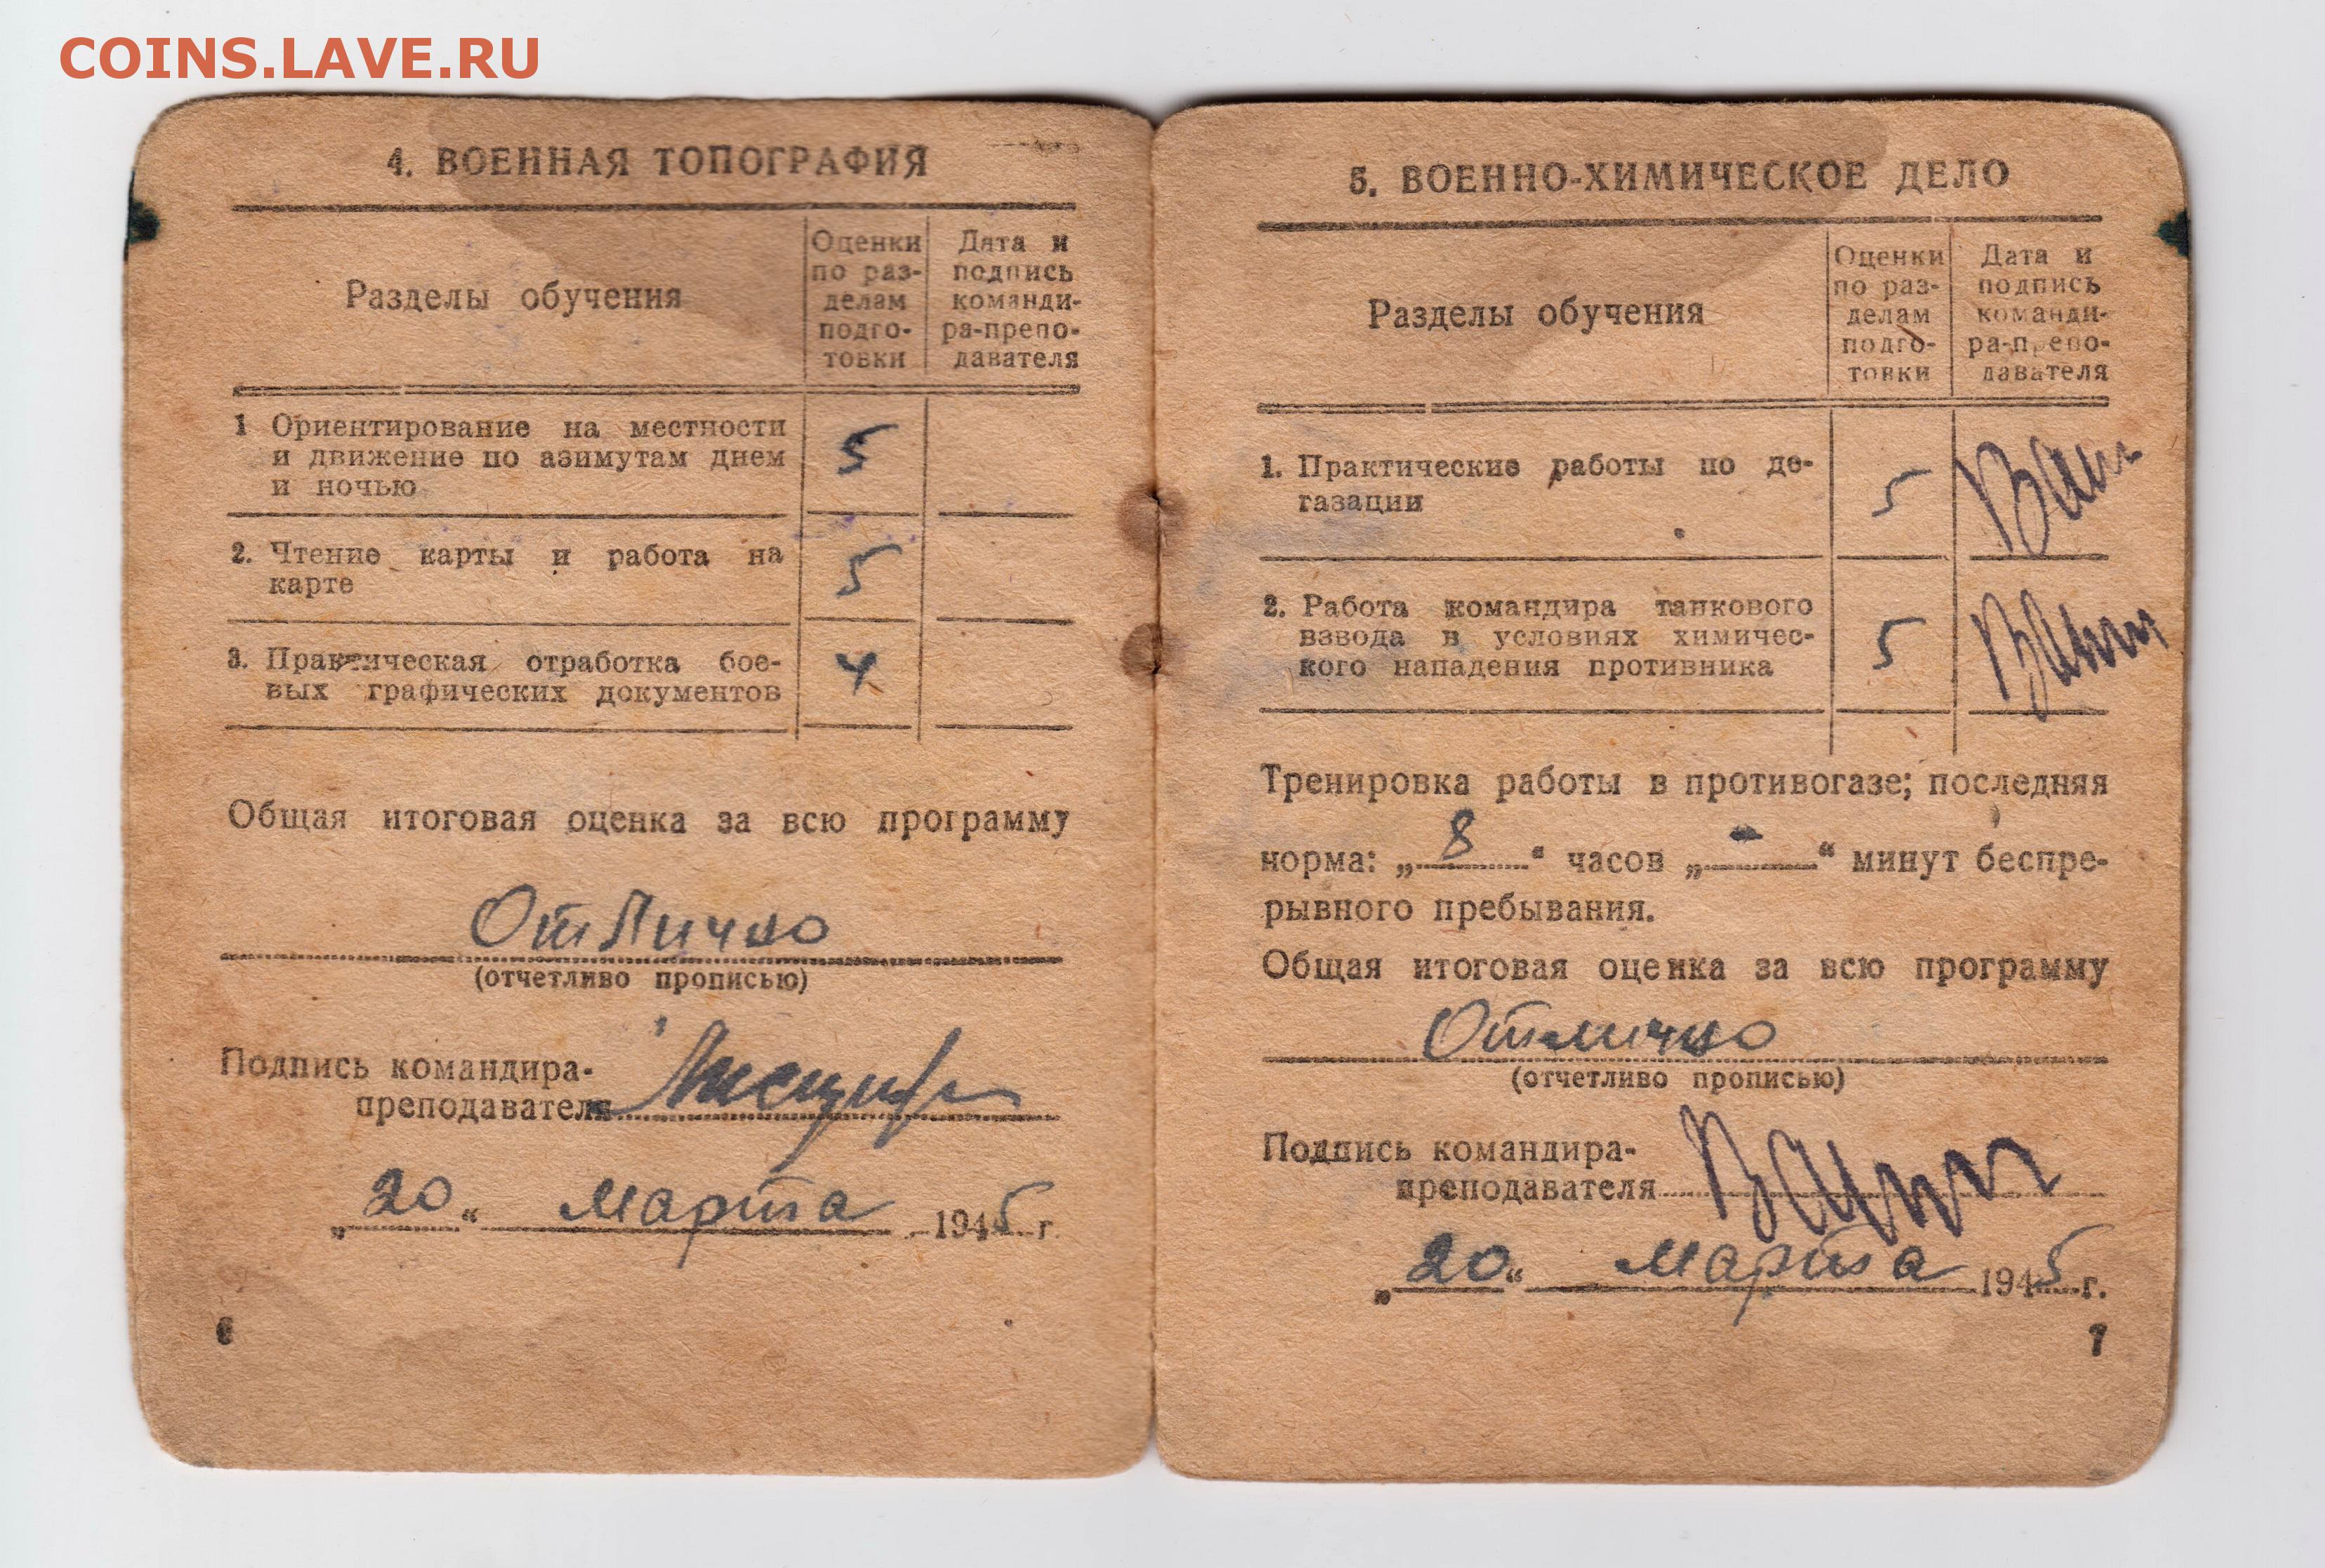 COINS.LAVE.RU
4. ВОЕННАЯ ТОПОГРАФИЯ
Разделы обучения
Оценки
по раз-
делам
подго-
товки
Дата и
подпись
команди-
ра-препо-
давателя
1 Ориентирование на местности
и движение по азимутам днем
и ночью
5
2. Чтение карты и работа на
карте
5
3. Практическая отработка бое-
вых графических документов
4
Общая итоговая оценка за всю программу
Отлично
(отчетливо прописью)
Подпись командира-
преподавателя
„20“ марта 1945 г.
6
5. ВОЕННО-ХИМИЧЕСКОЕ ДЕЛО
Разделы обучения
Оценки
по раз-
делам
подго-
товки
Дата и
подпись
команди-
ра-препо-
давателя
1. Практические работы по де-
газации
5
2. Работа командира танкового
взвода в условиях химичес-
кого нападения противника
5
Тренировка работы в противогазе; последняя
норма: „8“ часов „-“ минут беспре-
рывного пребывания.
Общая итоговая оценка за всю программу
Отлично
(отчетливо прописью)
Подпись командира-
преподавателя
„20“ марта 1945 г.
7